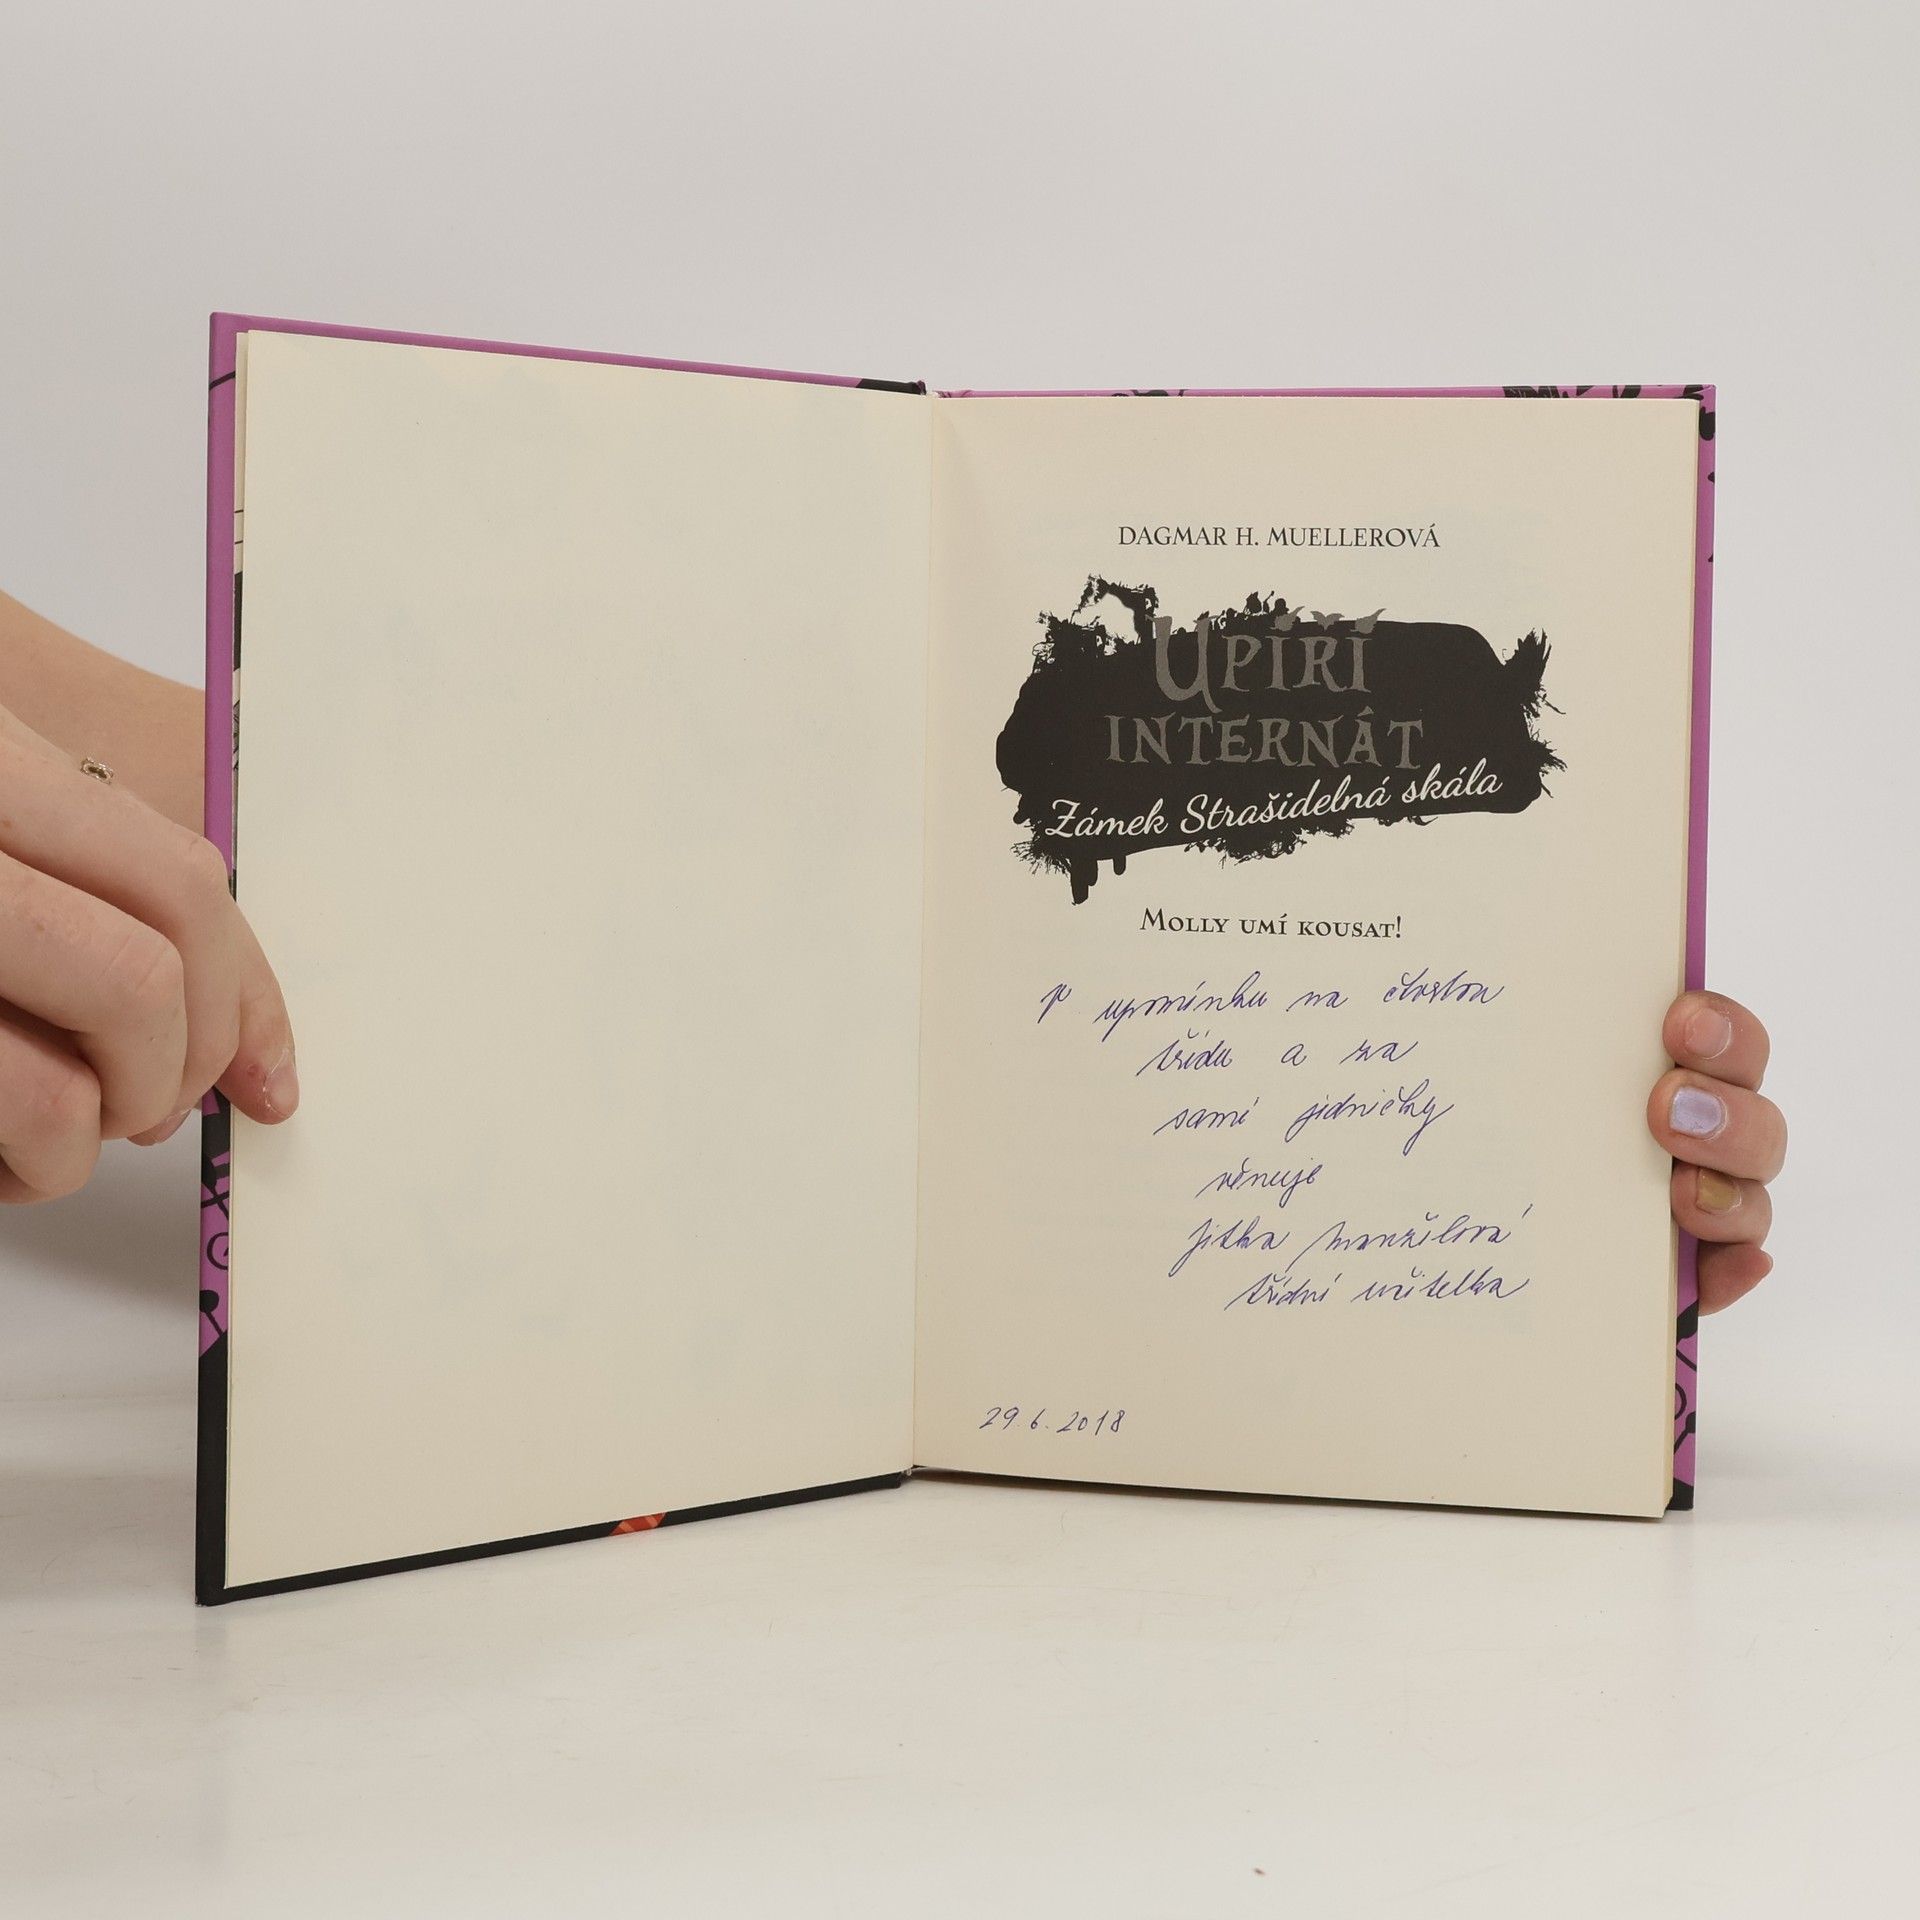 DAGMAR H. MUELLEROVÁ
UPÍŘÍ
INTERNÁT
Zámek Strašidelná skála
MOLLY UMÍ KOUSAT!
V upomínku na čtvrtou
třídu a za
samé jedničky
věnuje
Jitka
třídní učitelka
29.6.2018